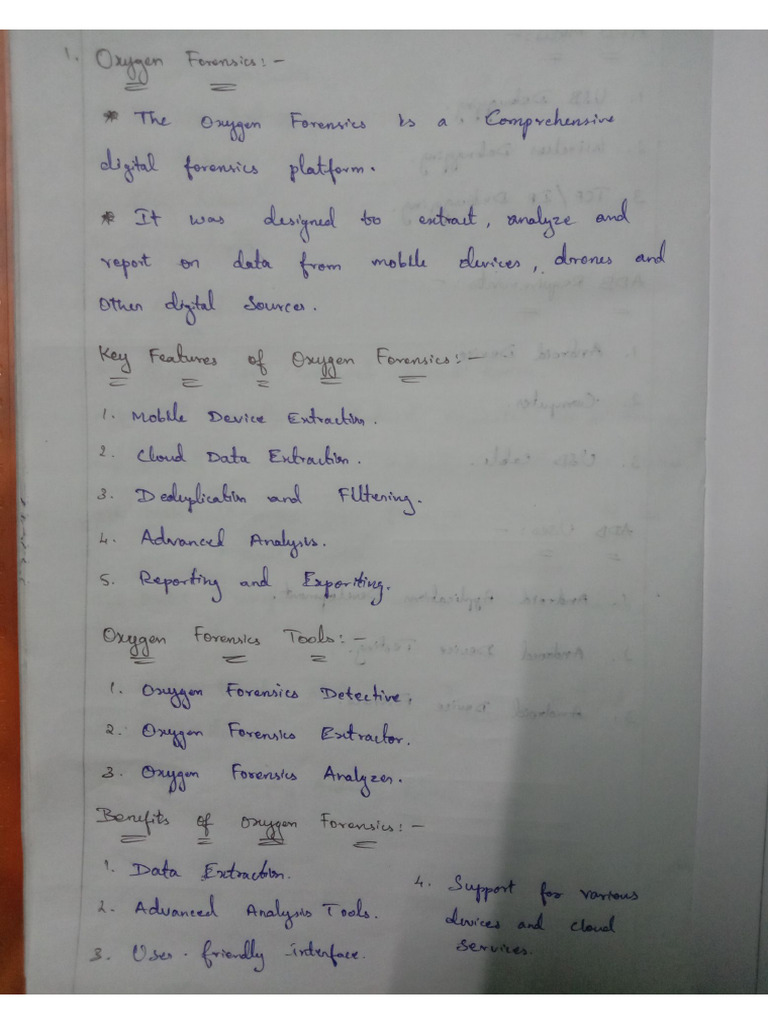 1. Oxygen Forensics:-
* The Oxygen Forensics is a Comprehensive
digital forensics platform.
* It was designed to extract, analyze and
report on data from mobile devices, drones and
other digital Sources.
Key Features of Oxygen Forensics:-
1. Mobile Device Extraction.
2. Cloud Data Extraction.
3. Deduplication and Filtering.
4. Advanced Analysis.
5. Reporting and Exporiting.
Oxygen Forensics Tools:-
1. Oxygen Forensics Detective.
2. Oxygen Forensics Extractor.
3. Oxygen Forensics Analyzer.
Benefits of Oxygen Forensics:-
1. Data Extraction.
2. Advanced Analysis Tools.
3. User-friendly interface.
4. Support for various
devices and cloud
services.